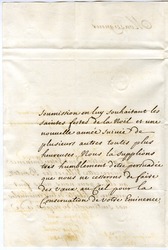 Soumission en luy souhaitant les
saintes fetes de la Noel et une
nouvelle année suivie de
plusieurs autres toutes plus
heureuses. Nous la supplions
tres humblement d'etre persuadée
que nous ne cessons de faire
des vœux au Ciel pour la
Conservation de votre Eminence;